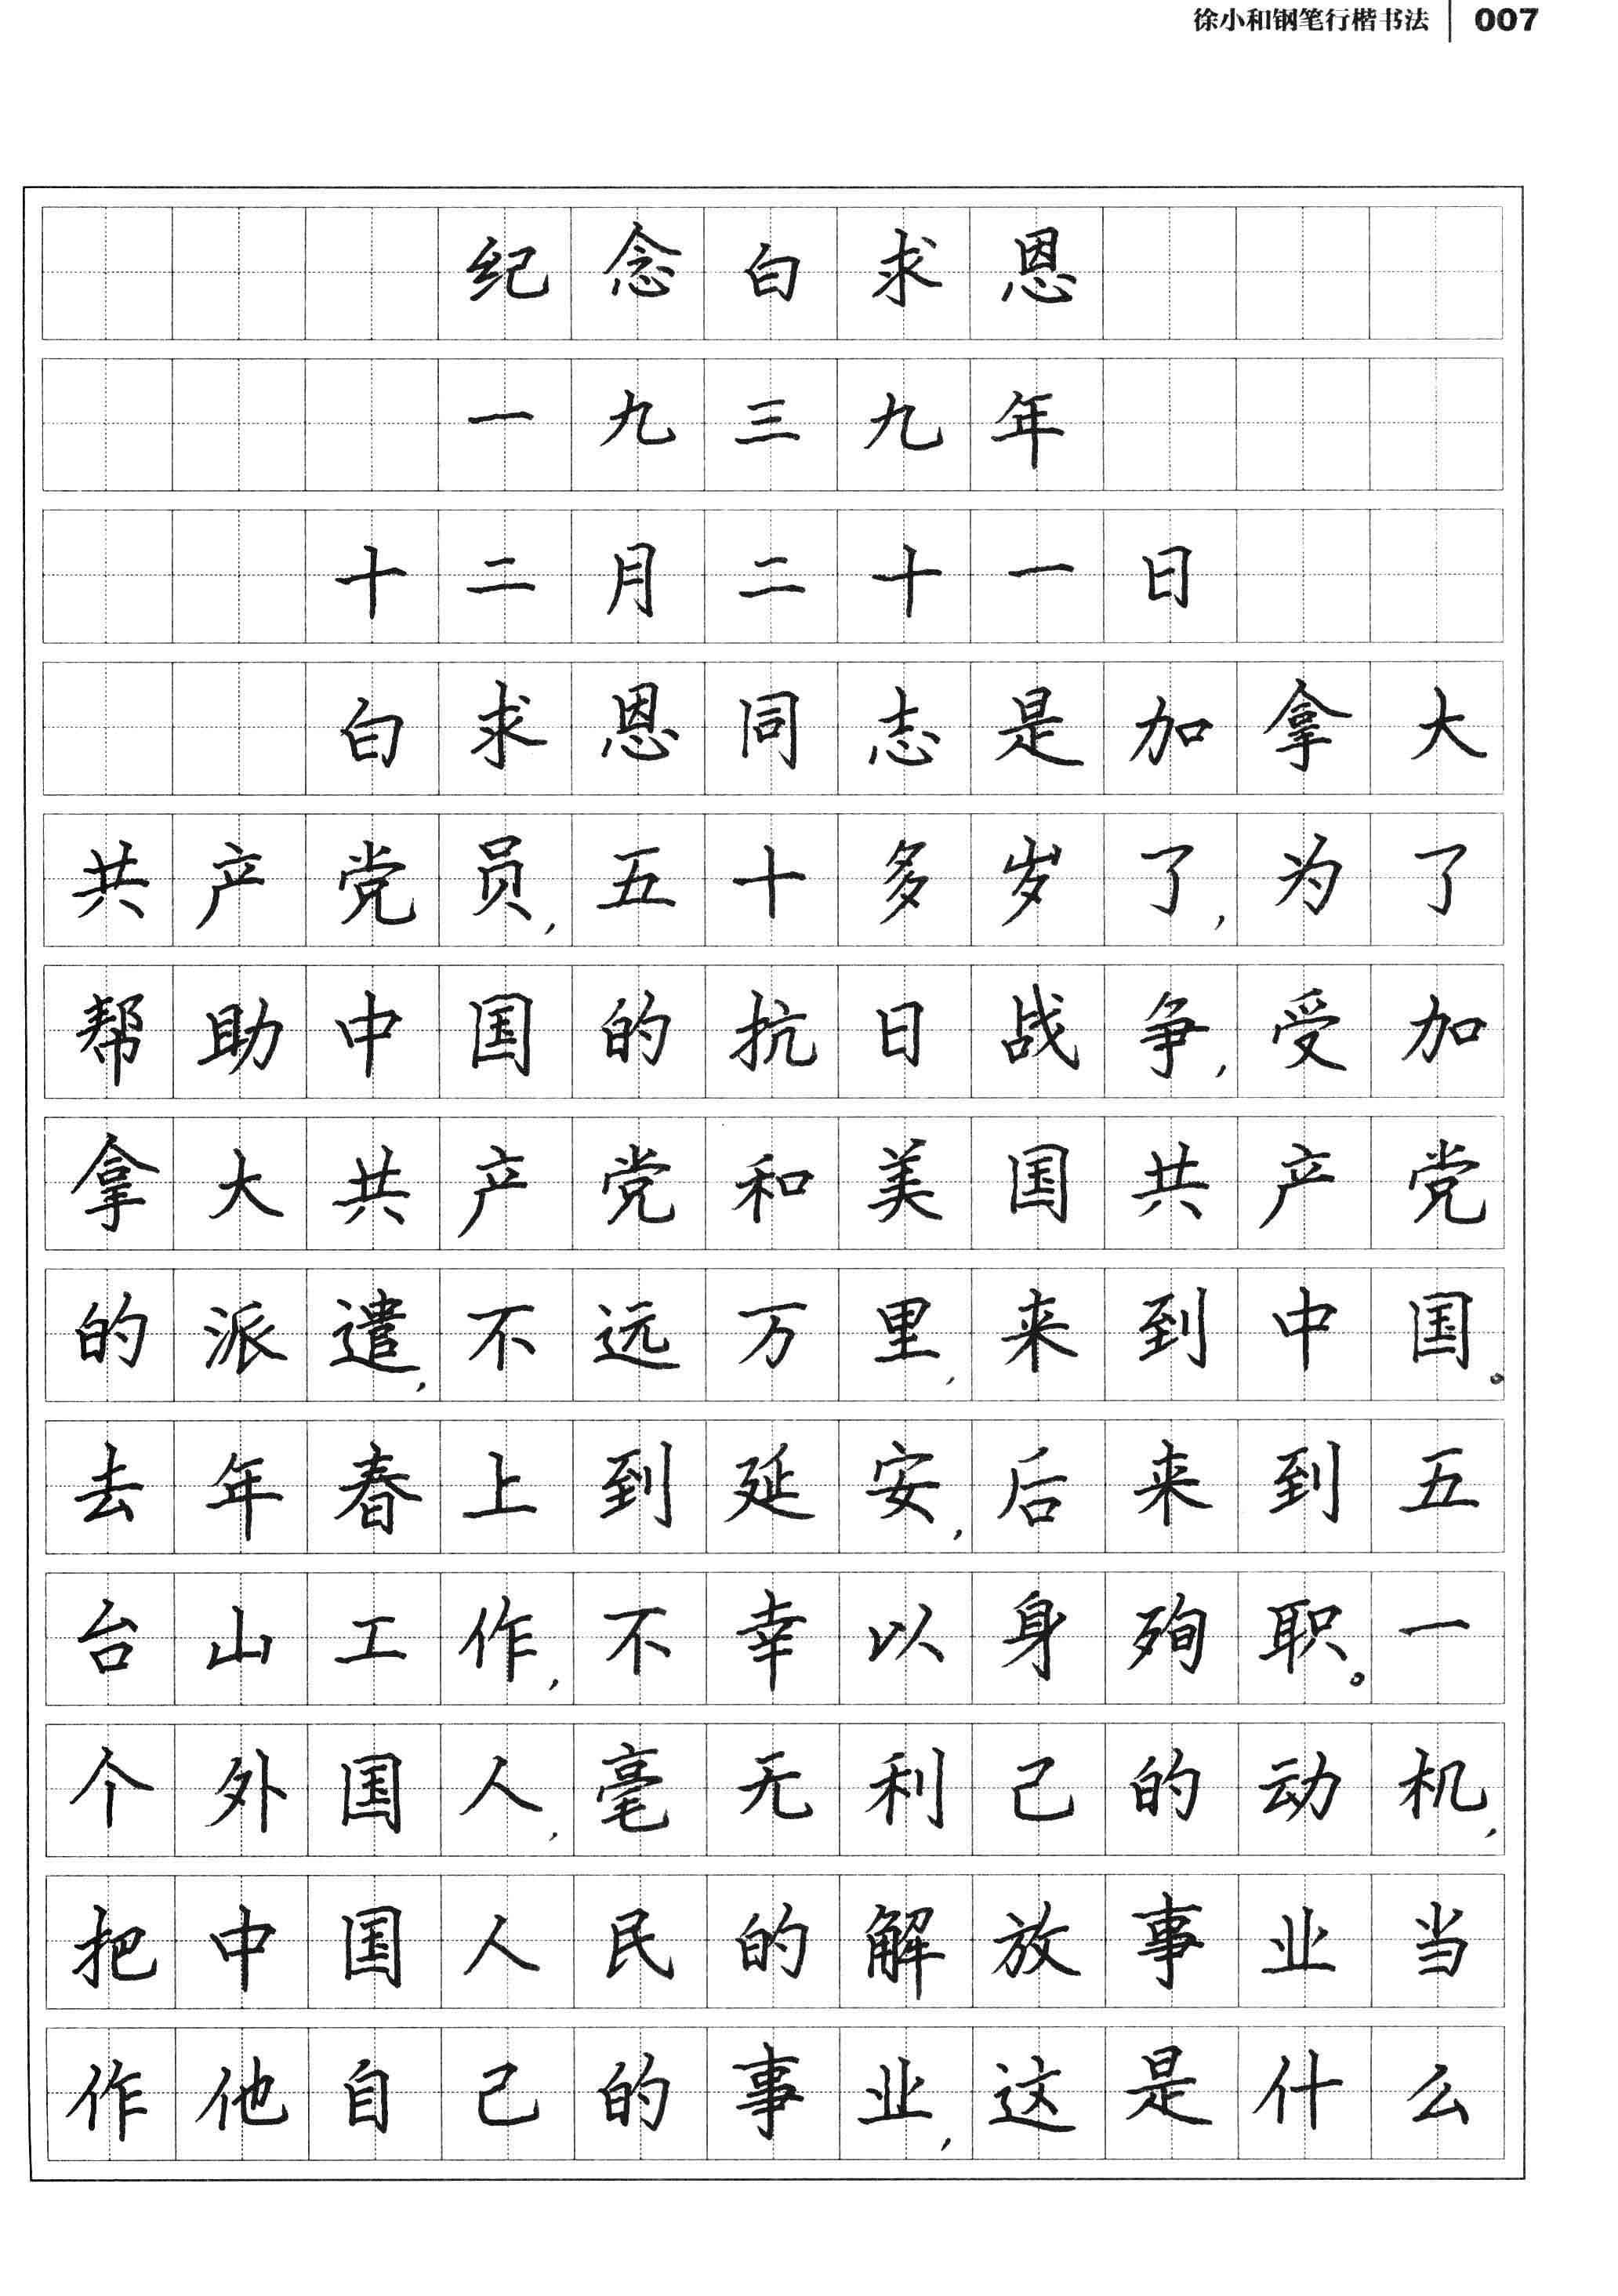 徐小和钢笔行楷书法 007
纪念白求恩
一九三九年
十二月二十一日
白求恩同志是加拿大
共产党员,五十多岁了,为了
帮助中国的抗日战争,受加
拿大共产党和美国共产党
的派遣,不远万里,来到中国。
去年春上到延安,后来到五
台山工作,不幸以身殉职。一
个外国人,毫无利己的动机,
把中国人民的解放事业当
作他自己的事业,这是什么